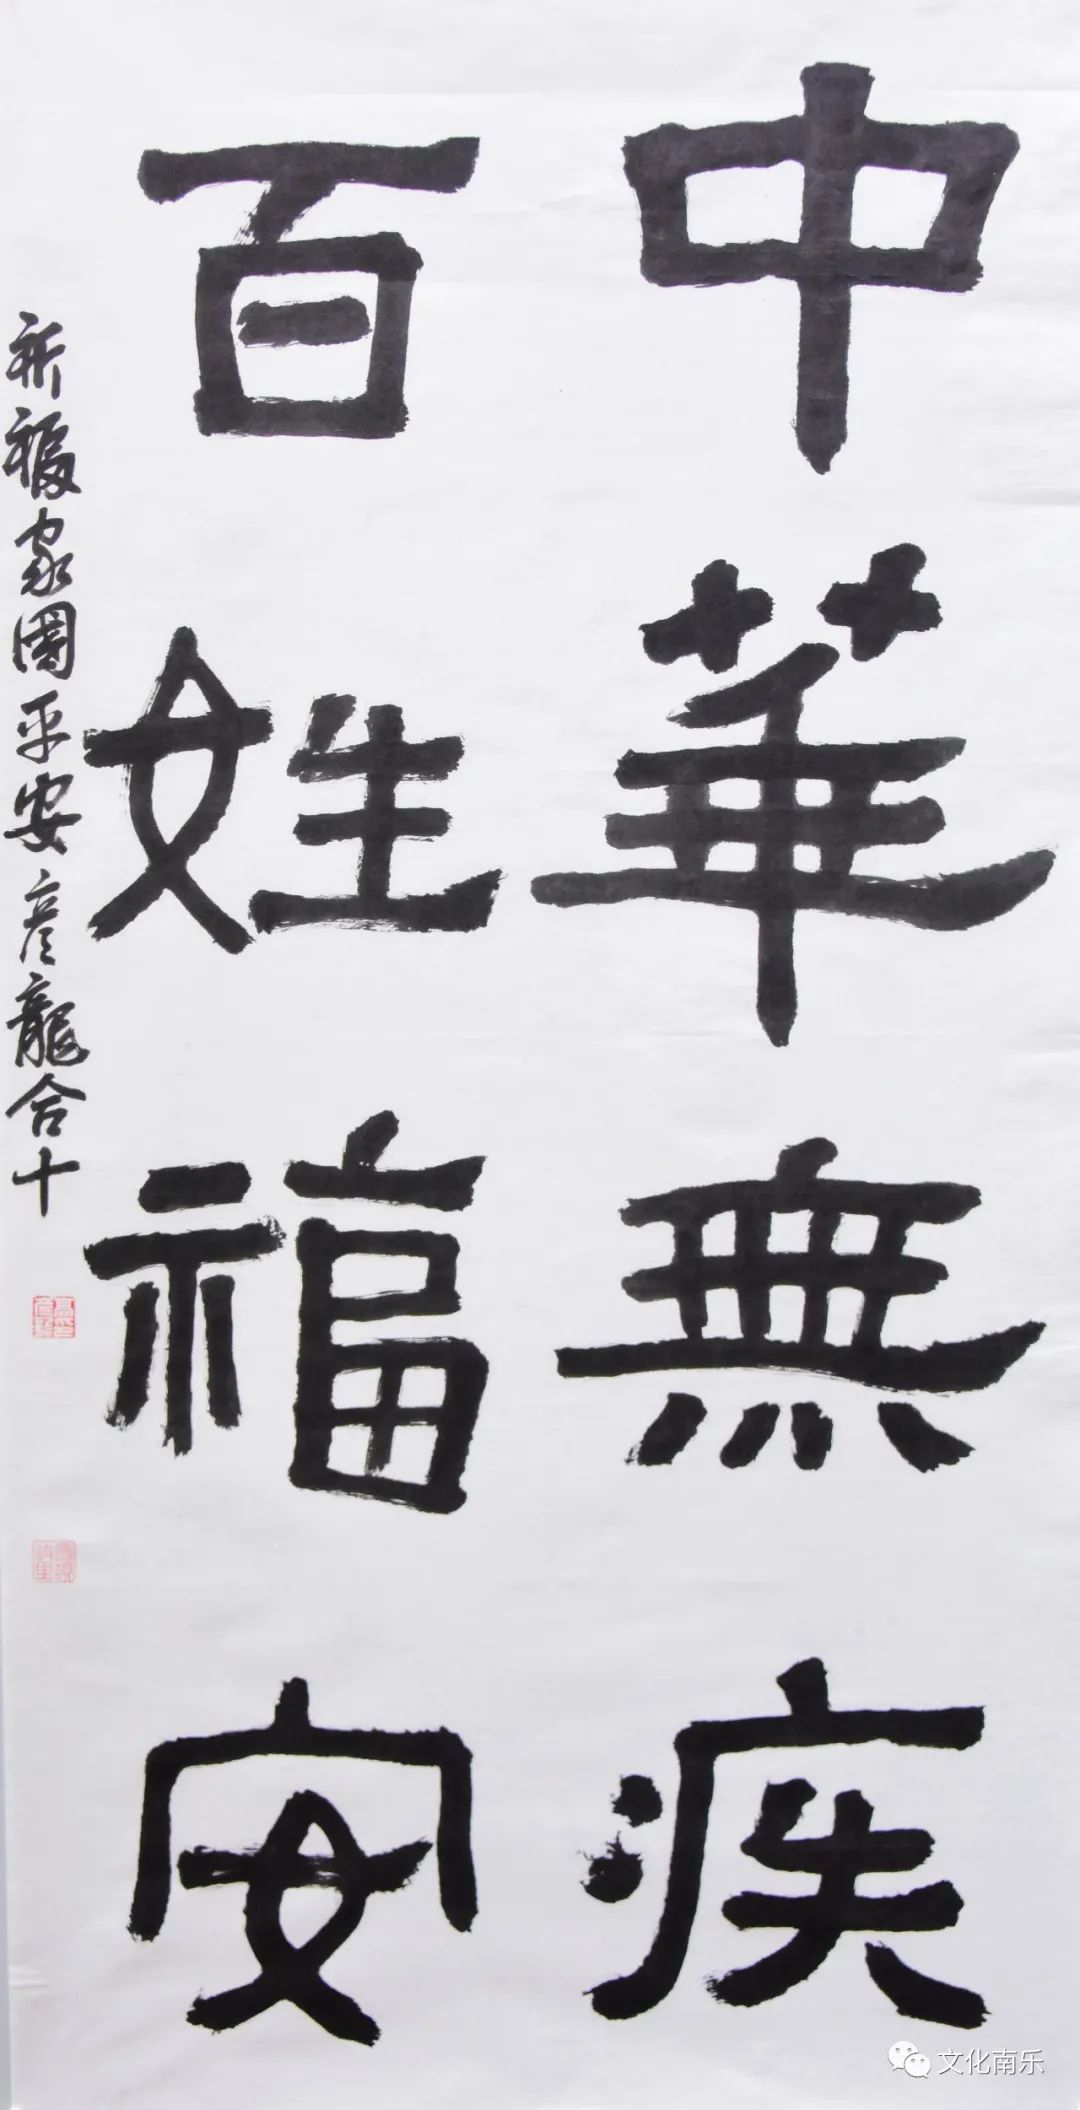 中華無疾
百姓福安
祈福家國平安彦龍合十
文化南乐